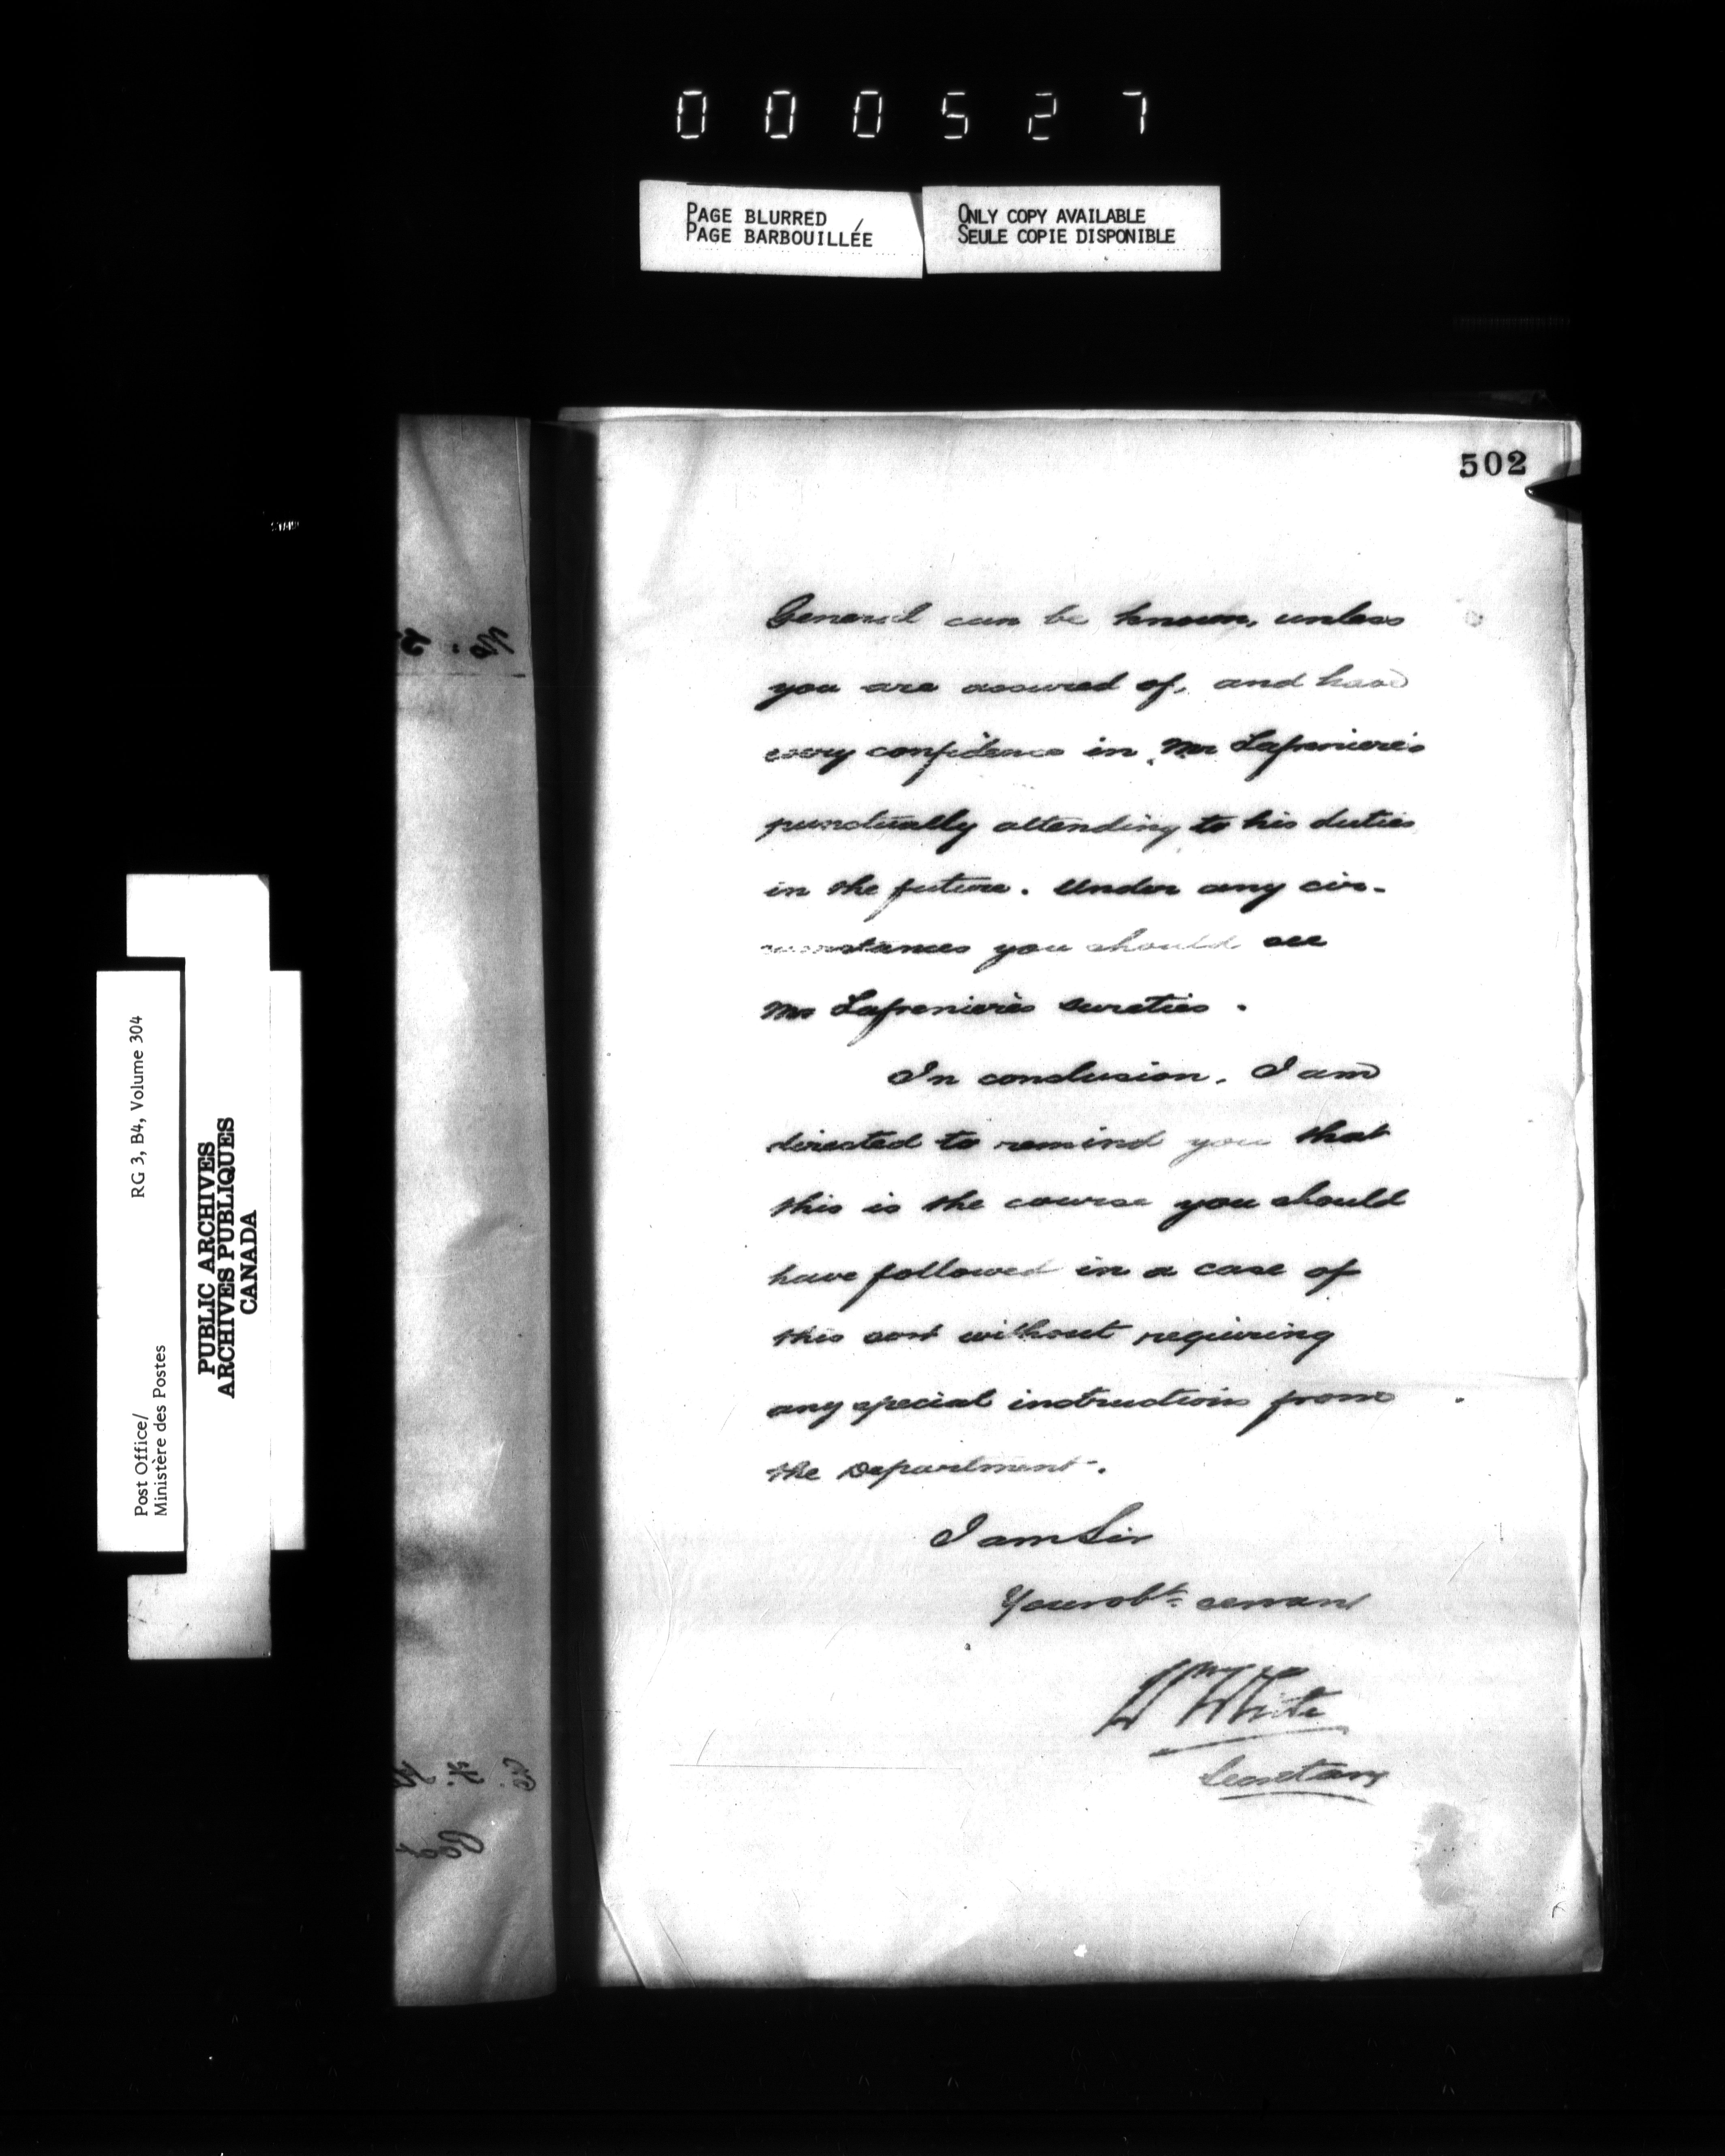 000527
PAGE BLURRED
PAGE BARBOUILLÉE
ONLY COPY AVAILABLE
SEULE COPIE DISPONIBLE
502
General can be known, unless
you are assured of, and have
every confidence in Mr Lafreniere's
punctually attending to his duties
in the future. Under any cir-
cumstances you should see
Mr Lafreniere's sureties.
In conclusion, I am
directed to remind you that
this is the course you should
have followed in a case of
this sort without requiring
any special instructions from
the Department.
I am Sir
Your obt. servant
Wm White
Secretary
Post Office/
Ministère des Postes
RG 3, B4, Volume 304
PUBLIC ARCHIVES
ARCHIVES PUBLIQUES
CANADA